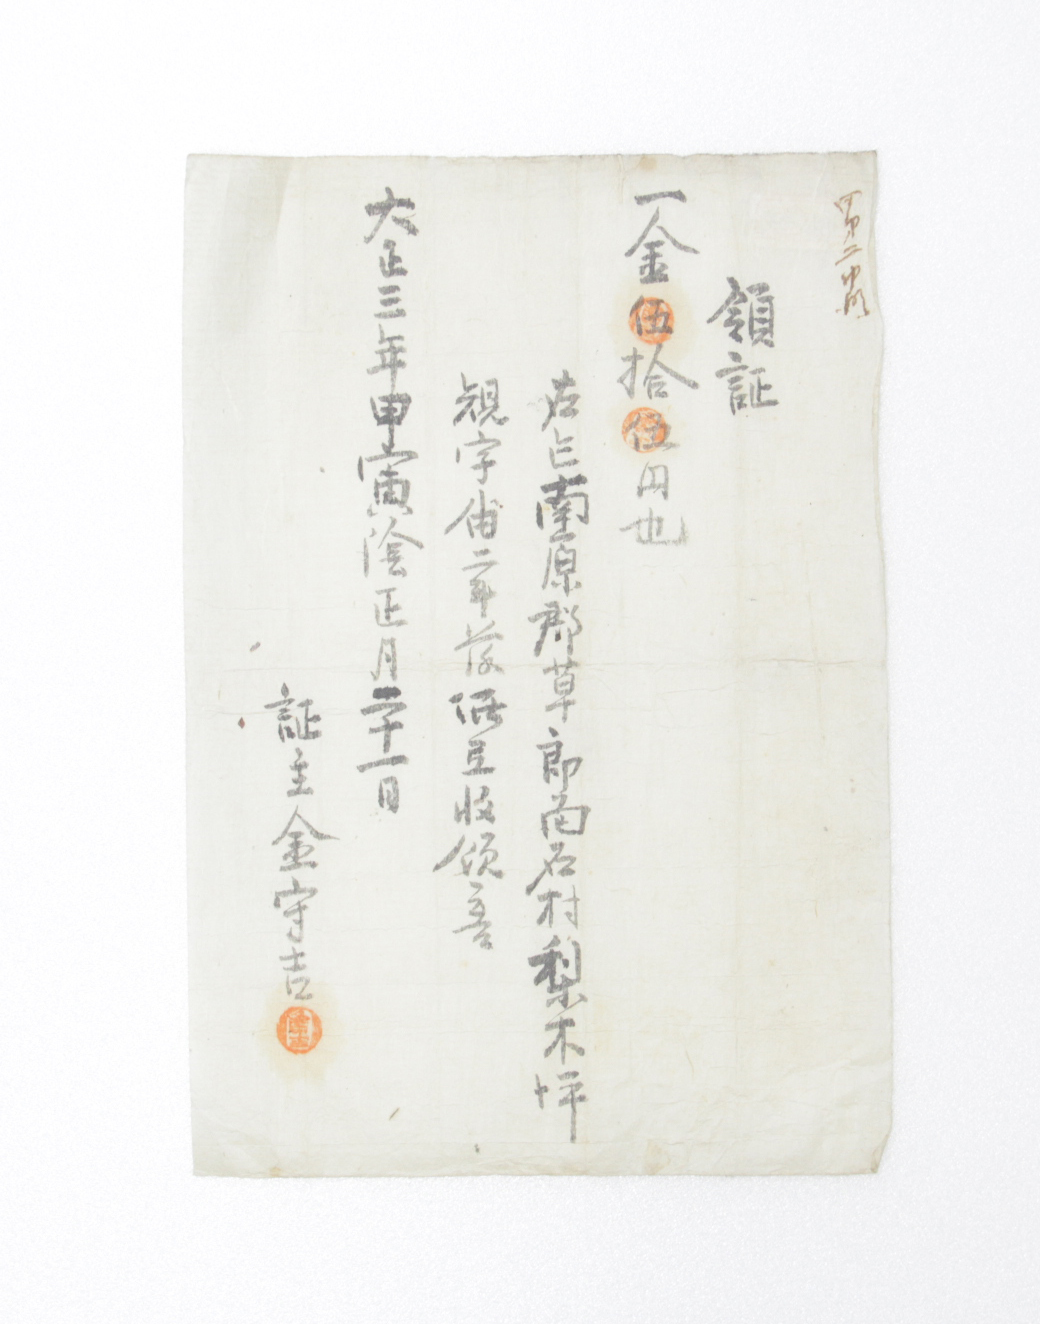 甲第二
領証
一金伍拾伍円也
右는南原郡草郎面名村梨木坪
規字畓二斗落価互収領事
大正三年甲寅陰正月二十一日
証主金守吉